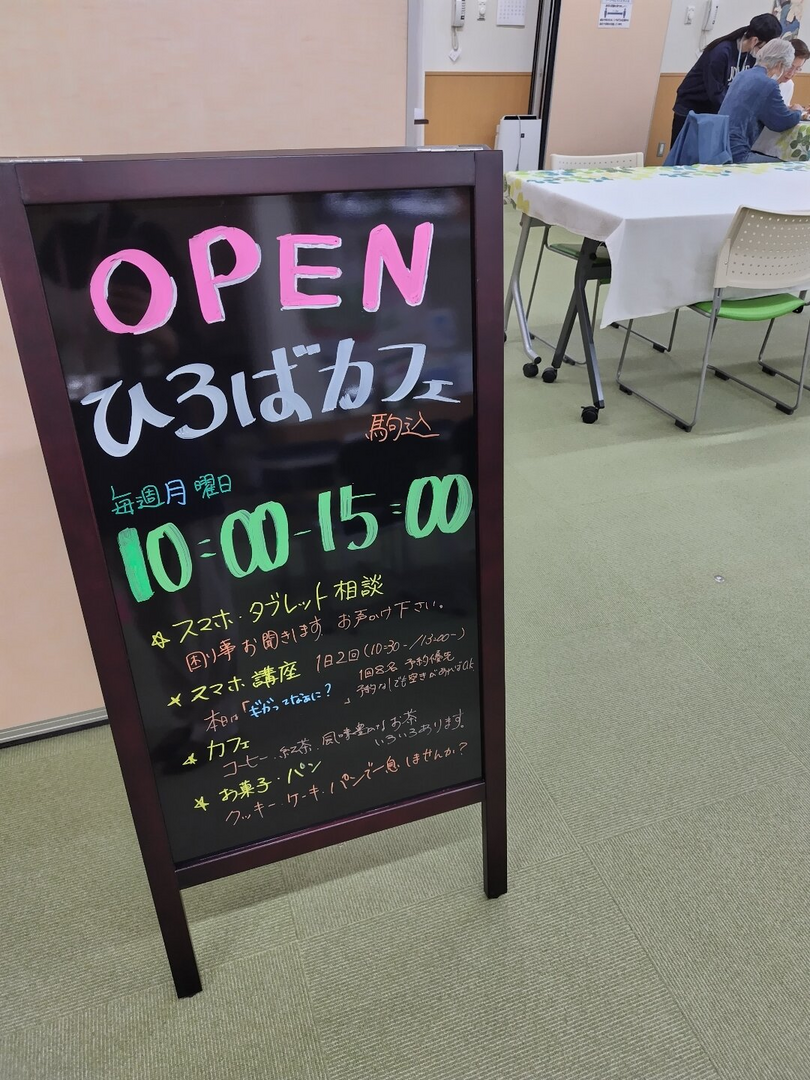 OPEN
ひろばカフェ
駒込
毎週月曜日
10:00-15:00
☆ スマホ・タブレット相談
困り事お聞きします お声かけ下さい。
★ スマホ講座 1日2回(10:30-/13:00-)
1回8名 予約優先
予約なしでも空きがあればOK
本日は「ギガってなぁに?」
★ カフェ
コーヒー、紅茶、風味豊かなお茶
いろいろあります。
★ お菓子・パン
クッキー・ケーキ・パンで一息しませんか?